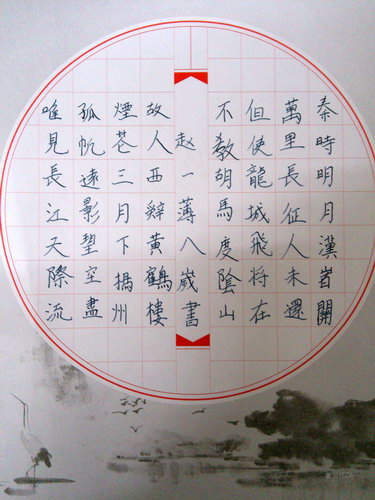 秦時明月漢旹關
萬里長征人未還
但使龍城飛將在
不教胡馬度陰山
赵一薄八歲書
故人西辤黃鶴樓
煙芲三月下揚州
孤帆遠影望空盡
唯見長江天際流